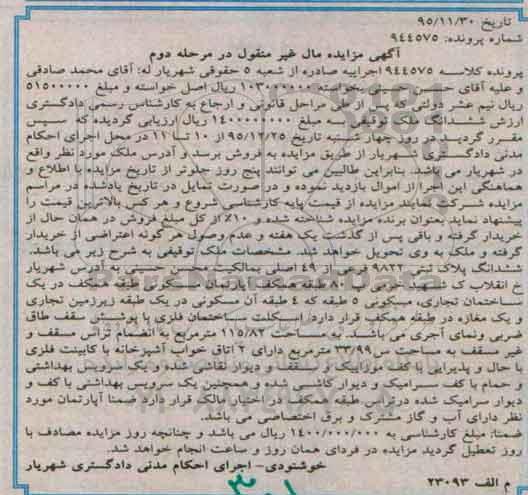 تاریخ ۹۵/۱۱/۳۰
شماره پرونده: ۹۴۴۵۷۵
آگهی مزایده مال غیر منقول در مرحله دوم
پرونده کلاسه ۹۴۴۵۷۵ اجراییه صادره از شعبه ۵ حقوقی شهریار له: آقای محمد صادقی
و علیه آقای حسن حسینی بخواسته ۱۰۳۰۰۰۰۰۰۰ ریال اصل خواسته و مبلغ ۵۱۵۰۰۰۰۰
ریال نیم عشر دولتی که پس از طی مراحل قانونی و ارجاع به کارشناس رسمی دادگستری
ارزش ششدانگ ملک توقیفی به مبلغ ۱۴۰۰۰۰۰۰۰۰ ریال ارزیابی گردیده که سپس
مقرر گردید در روز چهار شنبه تاریخ ۹۵/۱۲/۲۵ از ۱۰ تا ۱۱ در محل اجرای احکام
مدنی دادگستری شهریار از طریق مزایده به فروش برسد و آدرس ملک مورد نظر واقع
در شهریار می باشد. بنابراین طالبین می توانند پنج روز جلوتر از تاریخ مزایده با اطلاع و
هماهنگی این اجرا از اموال بازدید نموده و در صورت تمایل در تاریخ یادشده در مراسم
مزایده شرکت نمایند مزایده از قیمت پایه کارشناسی شروع و هر کس بالاترین قیمت را
پیشنهاد نماید بعنوان برنده مزایده شناخته شده و ۱۰٪ از کل مبلغ فروش در همان حال از
خریدار گرفته و باقی پس از گذشت یک هفته و عدم وصول هر گونه اعتراضی از خریدار
گرفته و ملک به وی تحویل خواهد شد. مشخصات ملک توقیفی به شرح زیر می باشد.
ششدانگ پلاک ثبتی ۹۸۲۲ فرعی از ۴۹ اصلی بمالکیت حسن حسینی به آدرس شهریار
خ انقلاب ک شهید طبقه همکف آپارتمان مسکونی طبقه همکف در یک
ساختمان تجاری، مسکونی ۵ طبقه که ۴ طبقه آن مسکونی در یک طبقه زیرزمین تجاری
و یک مغازه در طبقه همکف قرار دارد. اسکلت ساختمان فلزی با پوشش سقف طاق
ضربی ونمای آجری می باشد. به مساحت ۱۱۵/۸۲ مترمربع به انضمام تراس مسقف و
غیر مسقف به مساحت س ۳۳/۹۹ مترمربع دارای ۲ اتاق خواب آشپزخانه با کابینت فلزی
با حال و پذیرایی با کف موزائیک و سقف و دیوار نقاشی شده و یک سرویس بهداشتی
و حمام با کف سرامیک و دیوار کاشی شده و همچنین یک سرویس بهداشتی با کف و
دیوار سرامیک شده درتراس طبقه همکف در اختیار مالک قرار دارد ضمنا آپارتمان مورد
نظر دارای آب و گاز مشترک و برق اختصاصی می باشد.
ضمنا: مبلغ کارشناسی به ۱۴۰۰/۰۰۰/۰۰۰ ریال می باشد و چنانچه روز مزایده مصادف با
روز تعطیل گردید مزایده در فردای همان روز و ساعت انجام خواهد شد.
خوشنودی- اجرای احکام مدنی دادگستری شهریار
م الف ۲۳۰۹۳